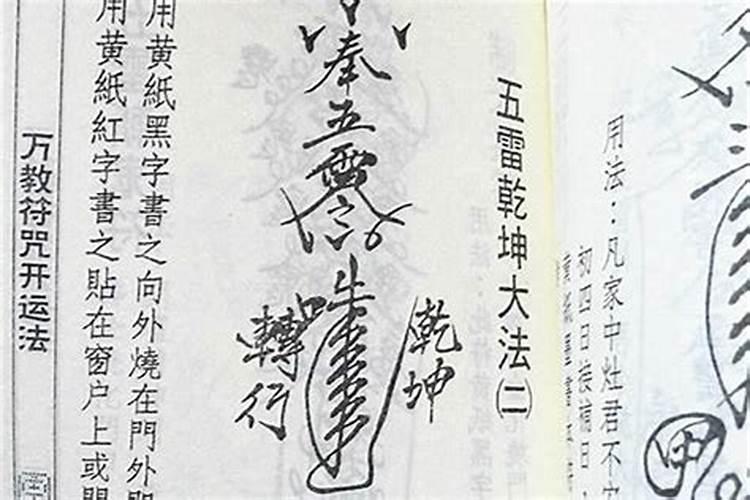 三
甲
用法：凡家中灶君不
初四日接補日
五雷乾坤大法㈡
乾坤
奉五雷
轉行
用黄紙黑字書之向外燒在門外即
用黄紙紅字書之貼在窗户上或
万教符咒开运法